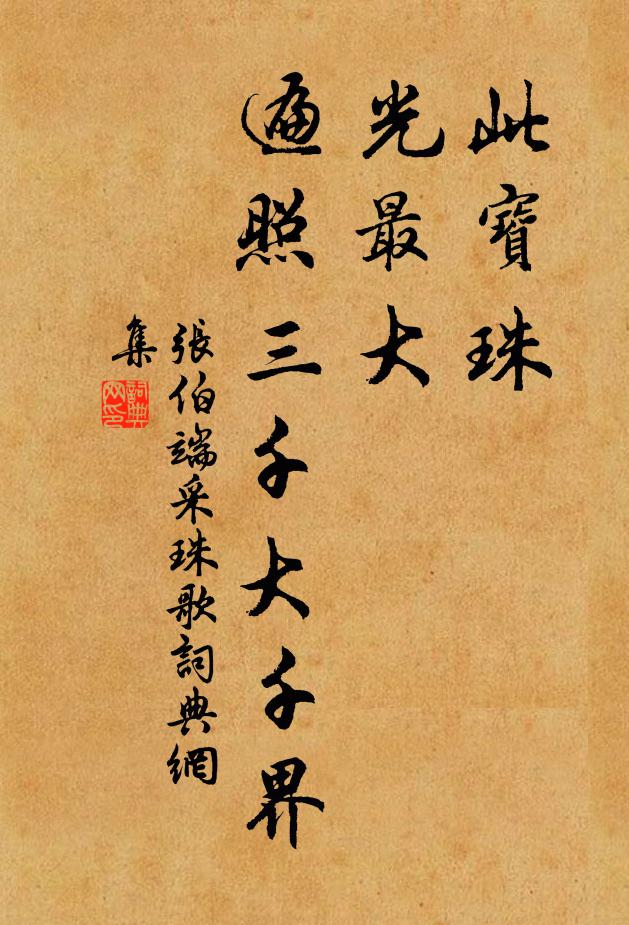 此寶珠
光最大
遍照三千大千界
張伯端采珠歌詞典網
集
詞典
網印